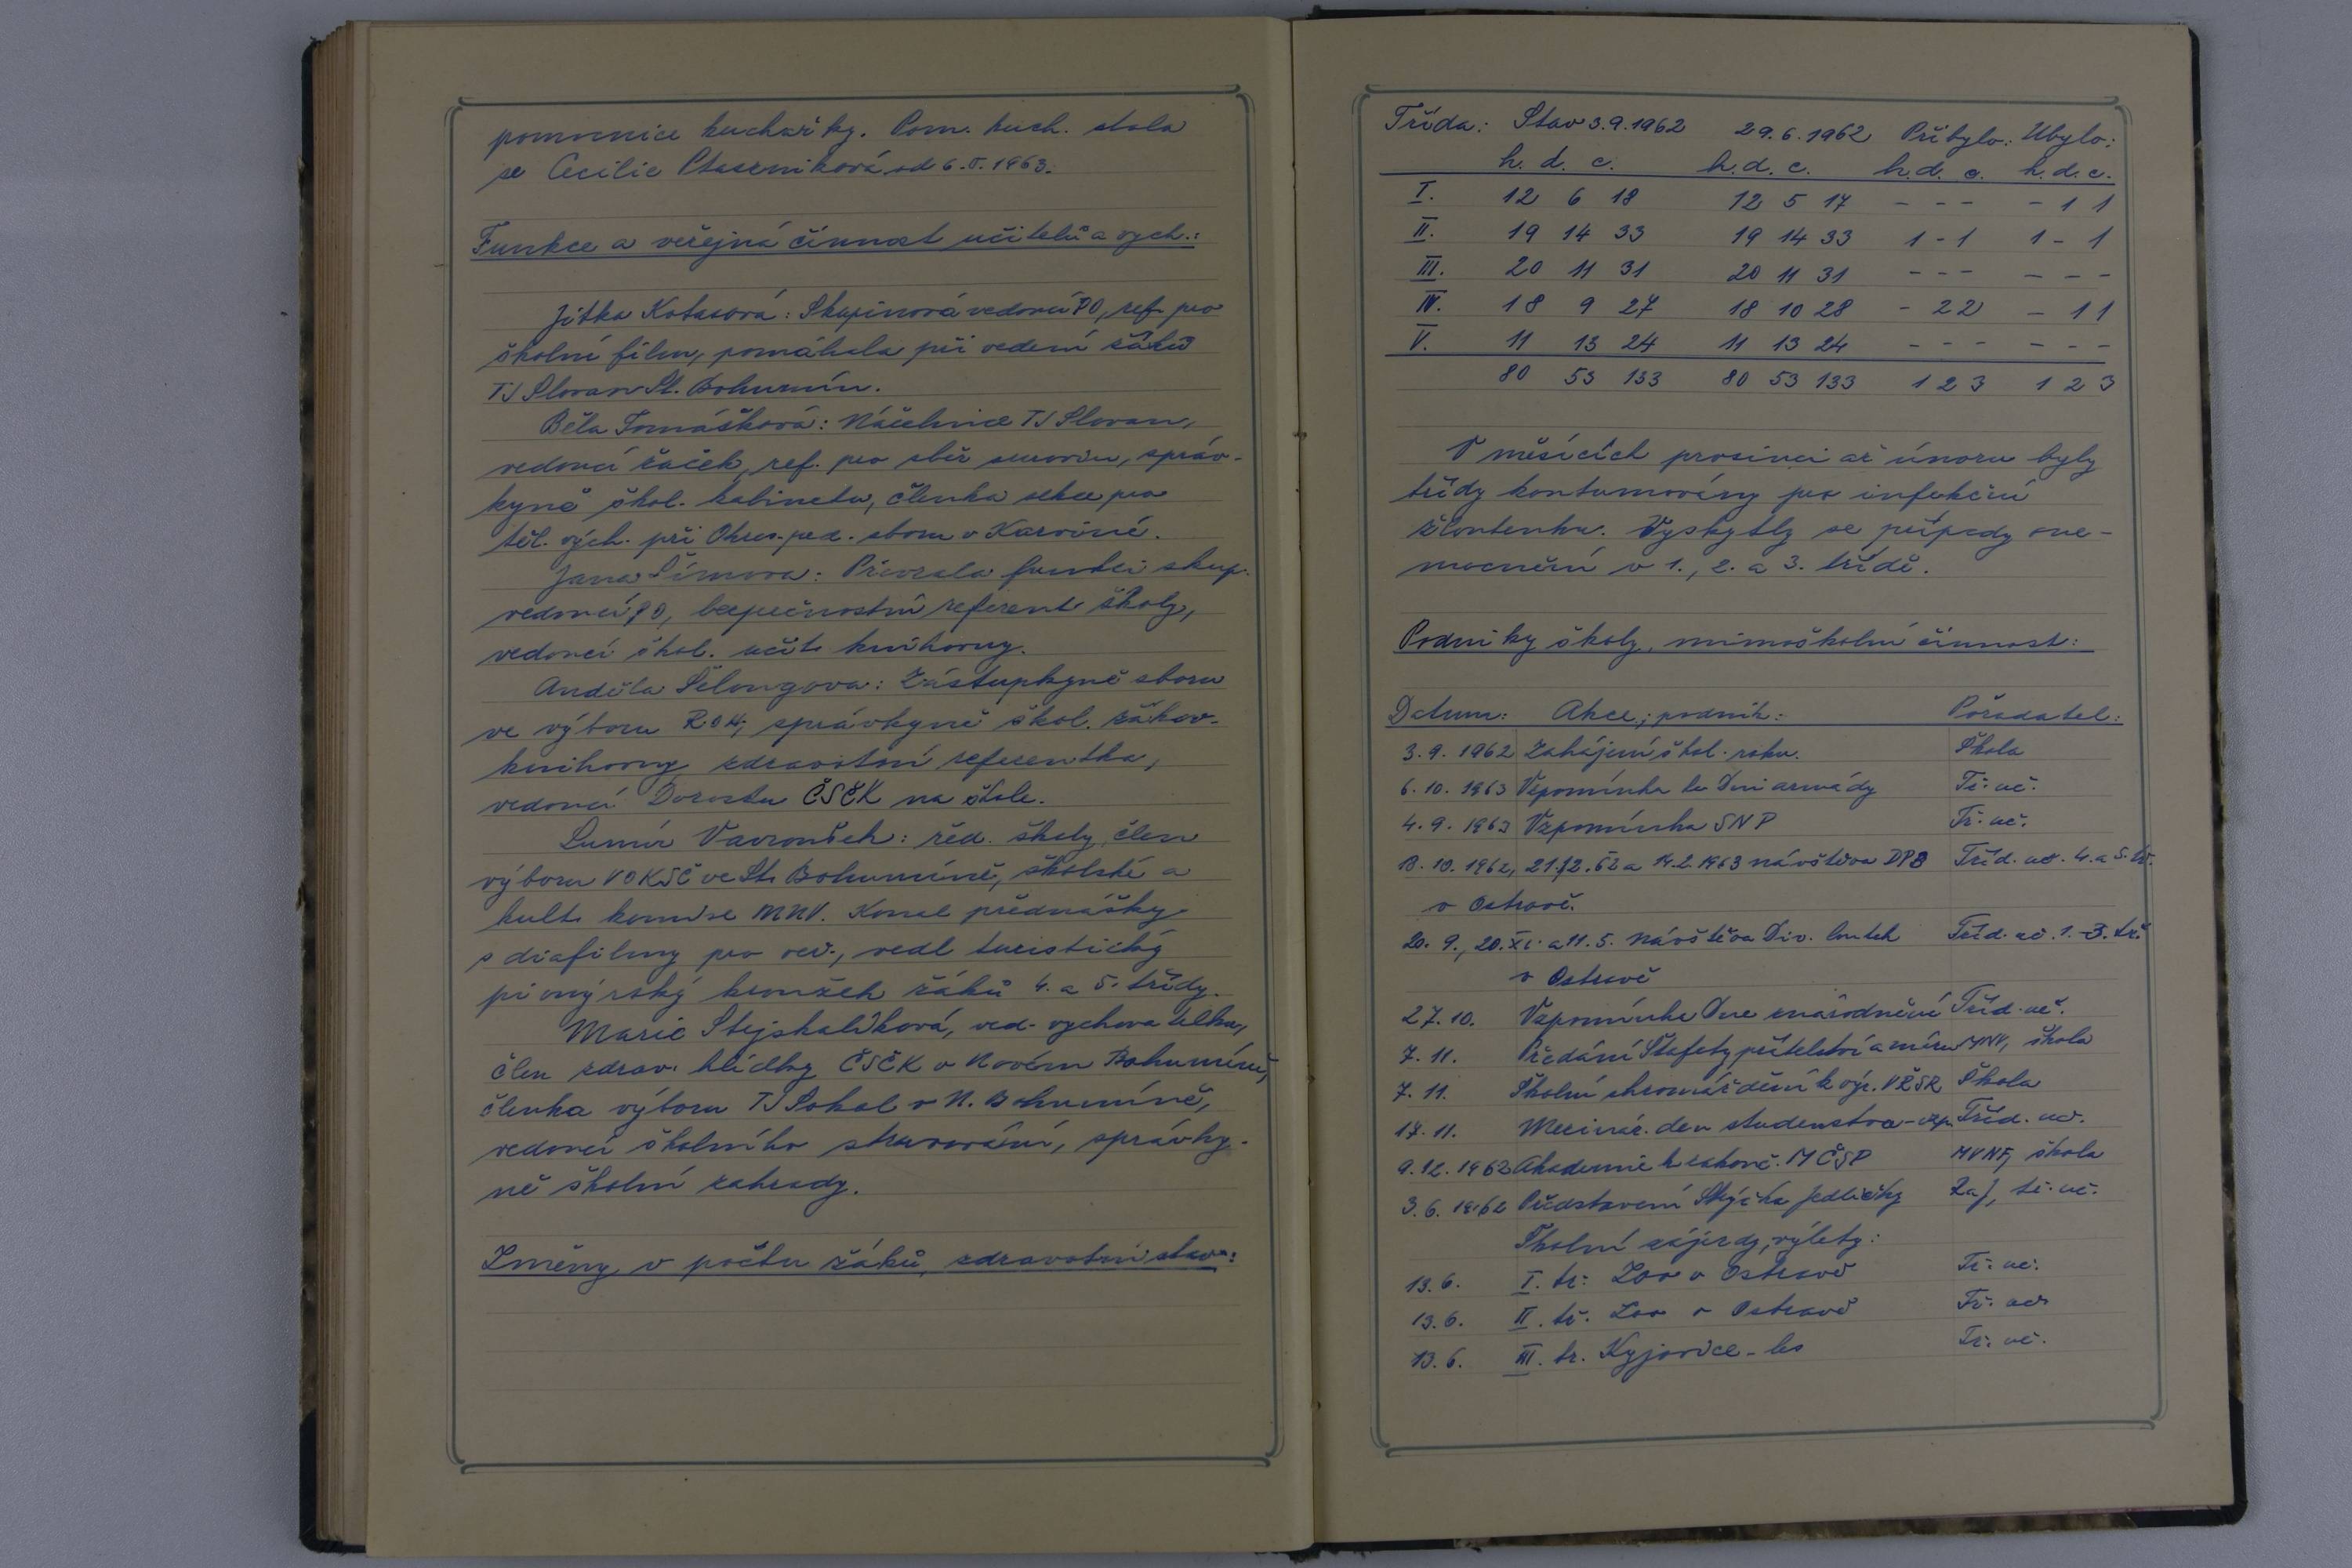 pomocnice kuchařky. Pom. kuch. stala
se Cecilie Ptaszniková od 6.5.1963.
Funkce a veřejná činnost učitelů a vych.:
Jitka Kotasová: Skupinová vedoucí PO, ref. pro
školní film, pomáhala při vedení žáků
TJ Slovan St. Bohumín.
Běla Tomášková: Náčelnice TJ Slovan,
vedoucí žaček, ref. pro sběr surovin, správ-
kyně škol. kabinetu, členka sekce pro
těl. vých. při Okres. ped. sboru v Karviné.
Jana Šímova: Převzala funkci skup.
vedoucí PO, bezpečnostní referent školy,
vedoucí škol. učit. knihovny.
Anděla Šelongova: Zástupkyně sboru
ve výboru ROH, správkyně škol. žákov.
knihovny, zdravotní referentka,
vedoucí Dorostu ČSČK na škole.
Lumír Vavroušek: řed. školy, člen
výboru VO KSČ ve St. Bohumíně, školské a
kult. komise MNV. Konal přednášky
s diafilmy pro veř., vedl turistický
pionýrský kroužek žáků 4. a 5. třídy.
Marie Stejskalíková, ved. vychovatelka,
člen zdrav. hlídky ČSČK v Novém Bohumíně,
členka výboru TJ Sokol v N. Bohumíně,
vedoucí školního stravování, správky-
ně školní zahrady.
Změny v počtu žáků, zdravotní stav:
Třída: Stav 3.9.1962 29.6.1962 Přibylo: Ubylo:
h. d. c. h. d. c. h. d. c. h. d. c.
I. 12 6 18 12 5 17 - - - - 1 1
II. 19 14 33 19 14 33 1 - 1 1 - 1
III. 20 11 31 20 11 31 - - - - - -
IV. 18 9 27 18 10 28 - 2 2 - 1 1
V. 11 13 24 11 13 24 - - - - - -
80 53 133 80 53 133 1 2 3 1 2 3
V měsících prosinci až únoru byly
třídy kontumovány pro infekční
žloutenku. Vyskytly se případy one-
mocnění v 1., 2. a 3. třídě.
Podniky školy, mimoškolní činnost:
Datum: Akce; podnik: Pořadatel:
3.9.1962 Zahájení škol. roku. Škola
6.10.1963 Vzpomínka ke Dni armády Tř. uč.
4.9.1963 Vzpomínka SNP Tř. uč.
18.10.1962, 21.12.62 a 14.2.1963 návštěva DPB Tříd. uč. 4. a 5. tř.
v Ostravě.
20.9., 20.XI. a 11.5. Návštěva Div. loutek Tříd. uč. 1.-3. tř.
v Ostravě
27.10. Vzpomínka Dne znárodnění Tříd. uč.
7.11. Předání Štafety přátelství a míru MNV, škola
7.11. Školní shromáždění k výr. VŘSR Škola
17.11. Mezinár. den studentstva - vzp. Tříd. uč.
9.12.1962 Akademie k zakonč. M ČSP MVNF, škola
3.6.1962 Představení Strýčka Jedličky Zaj, tř. uč.
Školní zájezdy, výlety:
13.6. I. tř. Zoo v Ostravě Tř. uč.
13.6. II. tř. Zoo v Ostravě Tř. uč.
13.6. III. tř. Kyjovice - les Tř. uč.